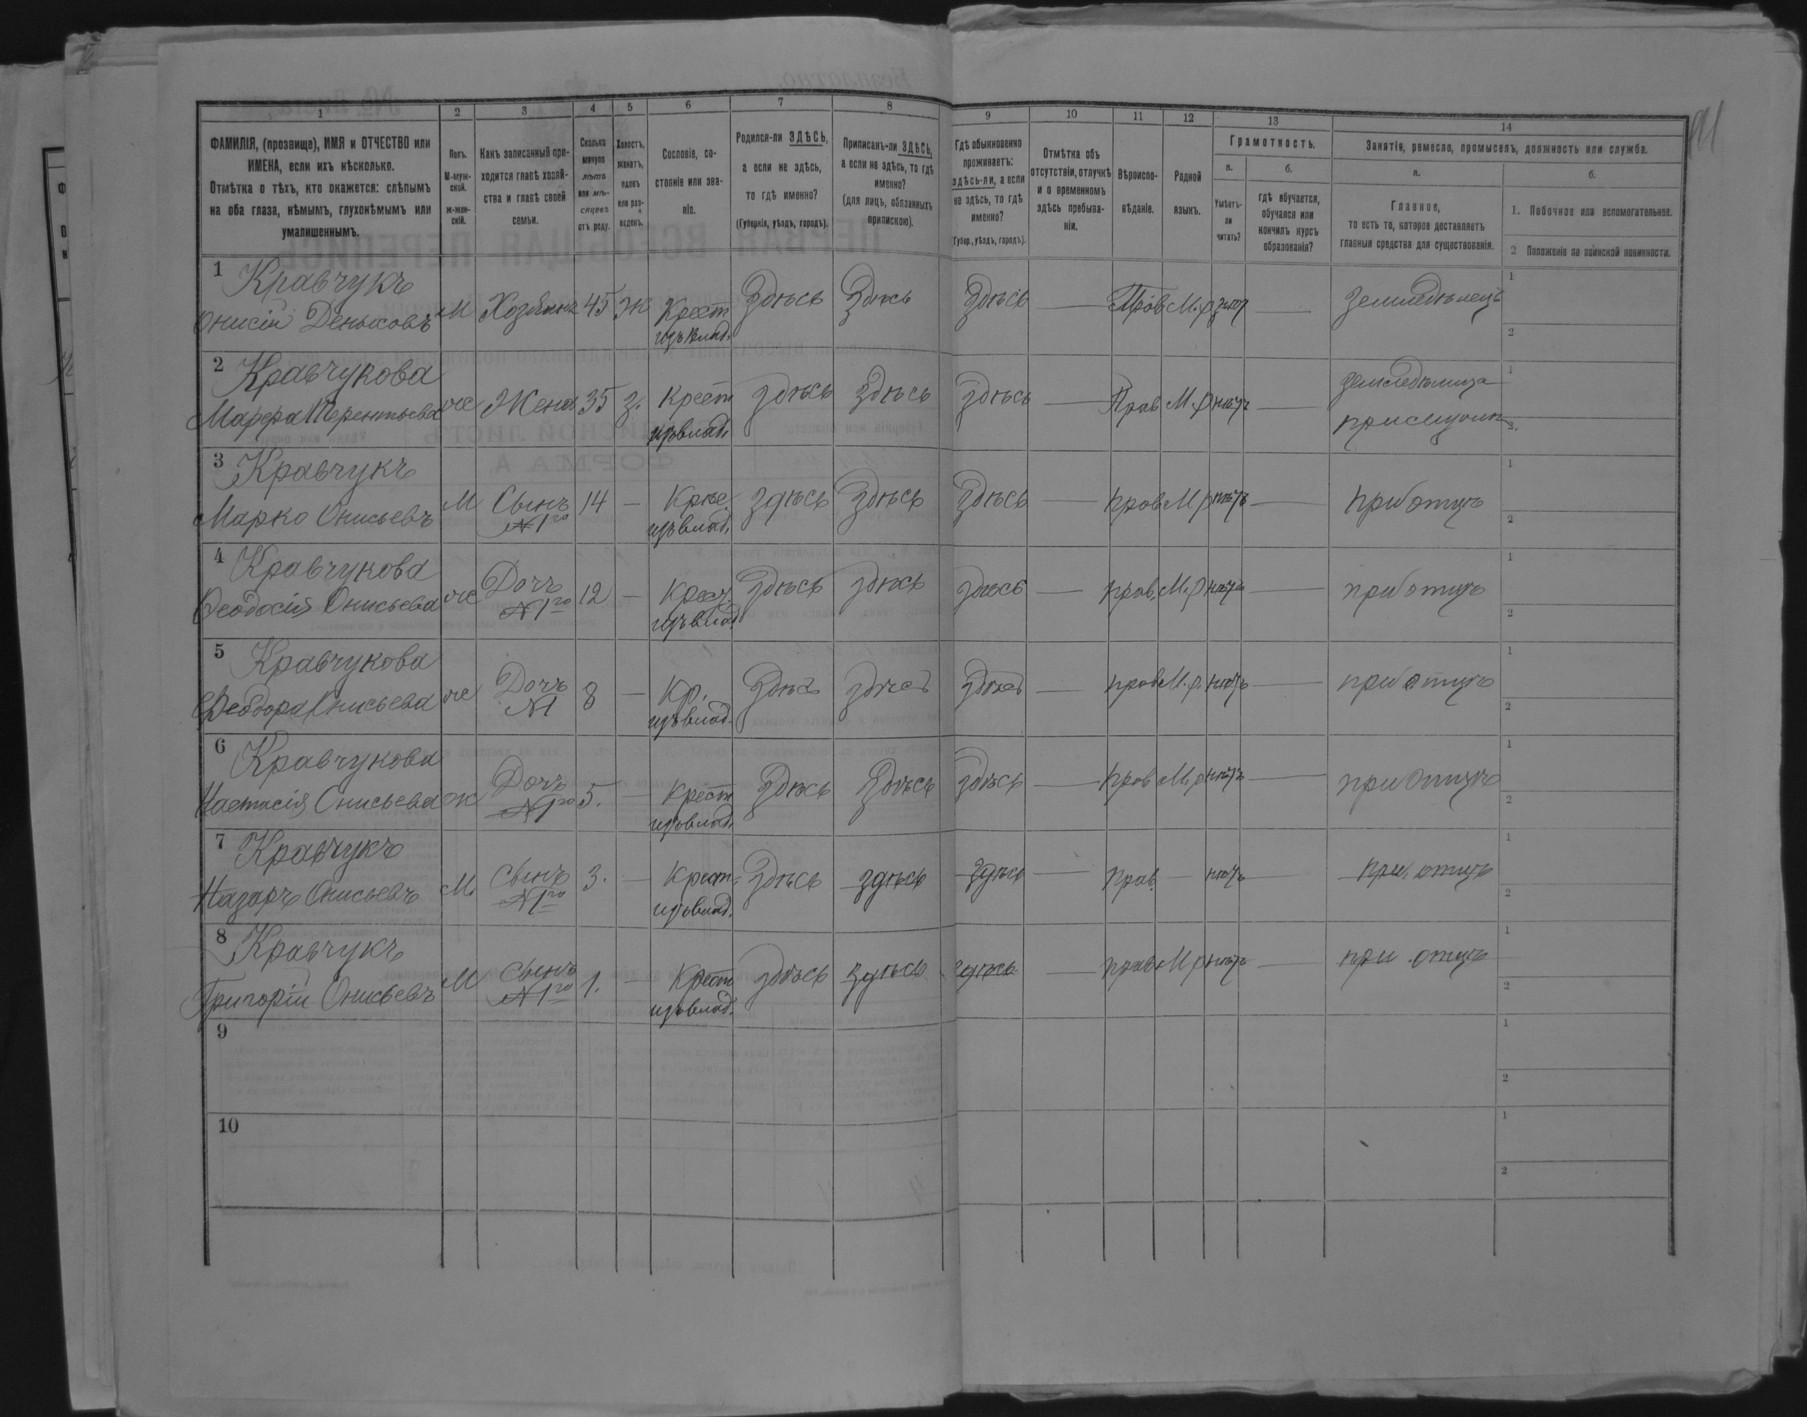 1 2 3 4 5 6 7 8 9 10 11 12 13 14
ФАМИЛІЯ, (прозвище), ИМЯ и ОТЧЕСТВО или ИМЕНА, если ихъ нѣсколько.
Отмѣтка о тѣхъ, кто окажется: слѣпымъ на оба глаза, нѣмымъ, глухонѣмымъ или умалишеннымъ.
Полъ.
М-муж-
ской.
ж-жен-
скій.
Какъ записанный при-
ходится главѣ хозяй-
ства и главѣ своей
семьи.
Сколько
минуло
лѣтъ
или мѣ-
сяцевъ
отъ роду.
Холостъ,
женатъ,
вдовъ
или раз-
веденъ.
Сословіе, со-
стояніе или зва-
ніе.
Родился-ли ЗДѢСЬ,
а если не здѣсь,
то гдѣ именно?
(Губернія, уѣздъ, городъ).
Приписанъ-ли ЗДѢСЬ,
а если не здѣсь, то гдѣ
именно?
(для лицъ, обязанныхъ
припискою).
Гдѣ обыкновенно
проживаетъ:
здѣсь-ли, а если
не здѣсь, то гдѣ
именно?
(Губер., уѣздъ, городъ).
Отмѣтка объ
отсутствіи, отлучкѣ
и о временномъ
здѣсь пребыва-
ніи.
Вѣроиспо-
вѣданіе.
Родной
языкъ.
Грамотность.
а.
Умѣетъ-
ли
читать?
б.
гдѣ обучается,
обучался или
кончилъ курсъ
образованія?
Занятіе, ремесло, промыселъ, должность или служба.
а.
Главное,
то есть то, которое доставляетъ
главныя средства для существованія.
б.
1. Побочное или вспомогательное.
2 Положеніе по воинской повинности.
91
1 Кравчукъ
Онисій Демьяновъ М Хозяинъ 45 Ж Крест изъ влад. Здѣсь Здѣсь Здѣсь — Прав М.р — Земледѣлецъ
1
2
2 Кравчукова
Марфа Терентьева Ж Жена 35 З. Крест изъ влад. здѣсь здѣсь здѣсь — Прав М.р нѣтъ —
1
2
3 Кравчукъ
Марко Онисьевъ М Сынъ №1го 14 — изъ влад. здѣсь здѣсь здѣсь — прав М р нѣтъ — при отцѣ
1
2
4 Кравчукова
Ѳеодосія Онисьева Ж Дочь №1го 12 — Крест. изъ влад здѣсь здѣсь здѣсь — прав. М.р нѣтъ — при отцѣ
1
2
5 Кравчукова
Ѳеодора Онисьева Ж Дочь №1 8 — Кр. изъ влад. здѣсь здѣсь здѣсь — прав М.р. нѣтъ — при отцѣ
1
2
6 Кравчукова
Настасія Онисьева Ж Дочь №1го 5. — Крест изъ влад. здѣсь здѣсь здѣсь — прав М.р нѣтъ — при отцѣ
1
2
7 Кравчукъ
Назаръ Онисьевъ М. Сынъ №1го 3. — Крест. изъ влад. здѣсь здѣсь здѣсь — прав. — нѣтъ — при. отцѣ
1
2
8 Кравчукъ
Григорій Онисьевъ М Сынъ №1го 1. — Крест изъ влад. здѣсь здѣсь здѣсь — прав М р нѣтъ — при отцѣ
1
2
9
1
2
10
1
2